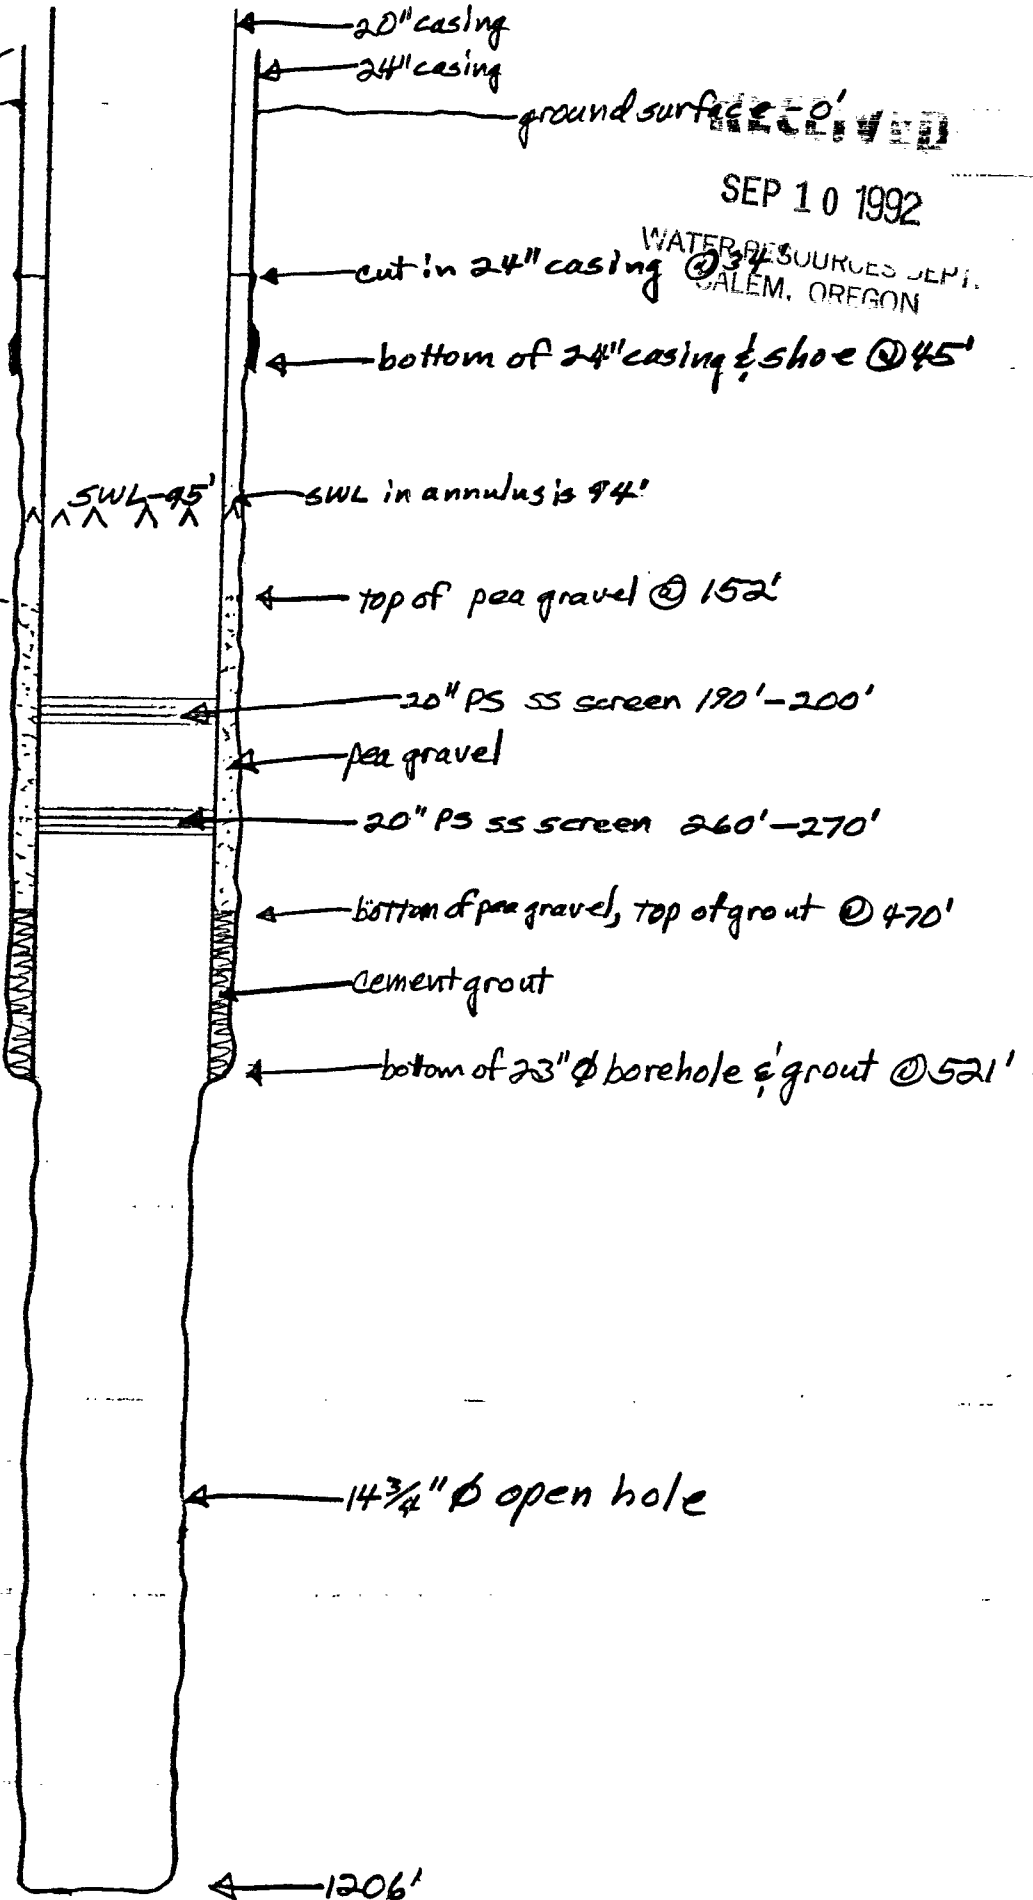 20" casing
24" casing
ground surface - 0'
RECEIVED
SEP 10 1992
WATER RESOURCES DEPT.
SALEM, OREGON
cut in 24" casing @ 34'
bottom of 24" casing & shoe @ 45'
SWL-95'
SWL in annulus is 94'
top of pea gravel @ 152'
20" PS SS screen 190'-200'
pea gravel
20" PS SS screen 260'-270'
bottom of pea gravel, top of grout @ 470'
cement grout
bottom of 23" Ø borehole & grout @ 521'
14 3/4" Ø open hole
1206'